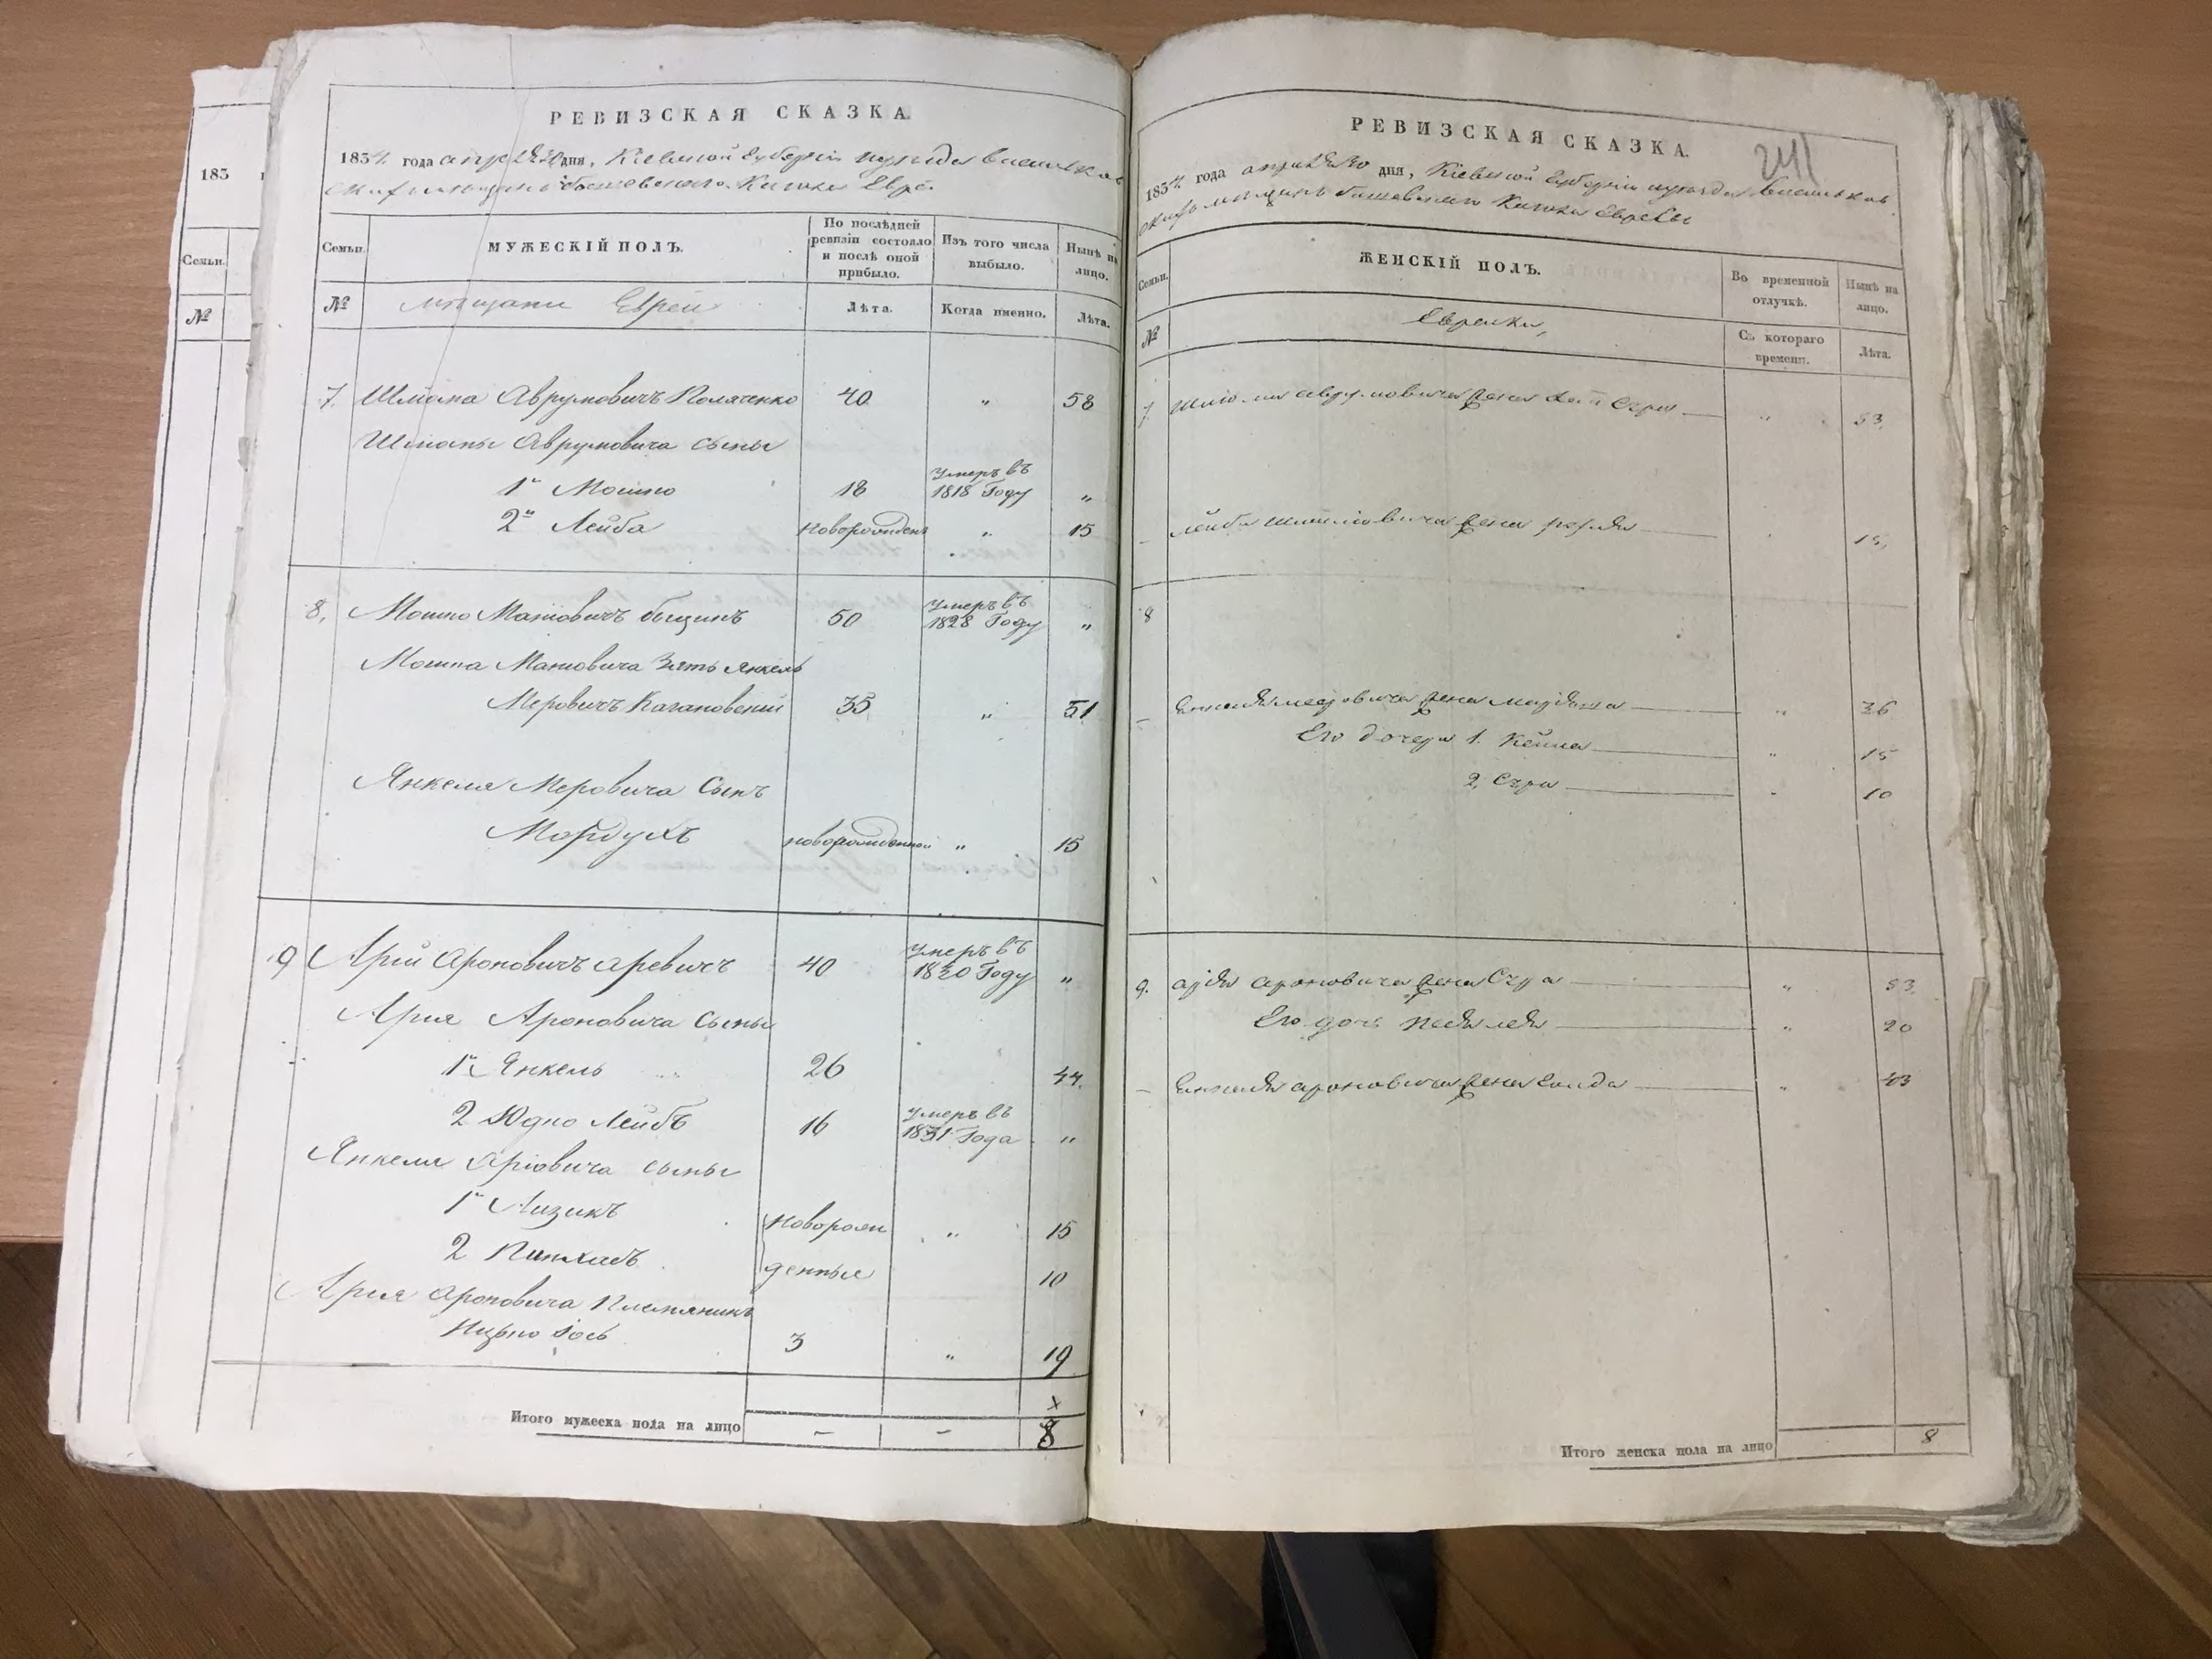 183
Семьи.
№
РЕВИЗСКАЯ СКАЗКА.
1834 года апреля 30 дня, Кіевской Губерніи
Евре
Семьи.
МУЖЕСКІЙ ПОЛЪ.
По послѣдней ревизіи состояло и послѣ оной прибыло.
Изъ того числа выбыло.
Нынѣ на лицо.
№
мѣщани Евреи
Лѣта.
Когда именно.
Лѣта.
7. Шліома Аврумовичъ 40 " 58
Шліомы Аврумовича сыны
1й Мошко 18 умеръ въ 1818 Году "
2й Лейба новорожден " 15
8, Мошко 50 умеръ въ 1828 Году "
Мошка зять Янкель
Меровичъ Кагановский 35 " 51
Янкеля Меровича Сынъ
Мордухъ новорожденной " 15
9 Арій Ароновичъ Аревичъ 40 умеръ въ 1820 Году "
Ария Ароновича Сыны
1й Янкель 26 44.
2 Юдко Лейбъ 16 умеръ въ 1831 Года "
Янкеля Аріовича сыны
1й Аизикъ новорож " 15
2 Пинхасъ денные 10
Ария Ароновича Племянникъ
Ицько Іось 3 " 19
х
Итого мужеска пола на лицо – – 8
РЕВИЗСКАЯ СКАЗКА.
241
1834 года апреля 30 дня, Кіевской Губерніи
Евреевъ
Семьи.
ЖЕНСКІЙ ПОЛЪ.
Во временной отлучкѣ.
Нынѣ на лицо.
№
Еврейки,
Съ котораго времени.
Лѣта.
7 Шліомы Аврумовича жена Сура " 53.
Лейбы жена 15,
8
Янкеля Мееровича жена " 36
Его дочеря 1. Кейла " 15
2, Сура " 10
9. Арія Ароновича жена Сура " 53.
Его дочь " 20
Янкеля Ароновича жена " 43
Итого женска пола на лицо 8